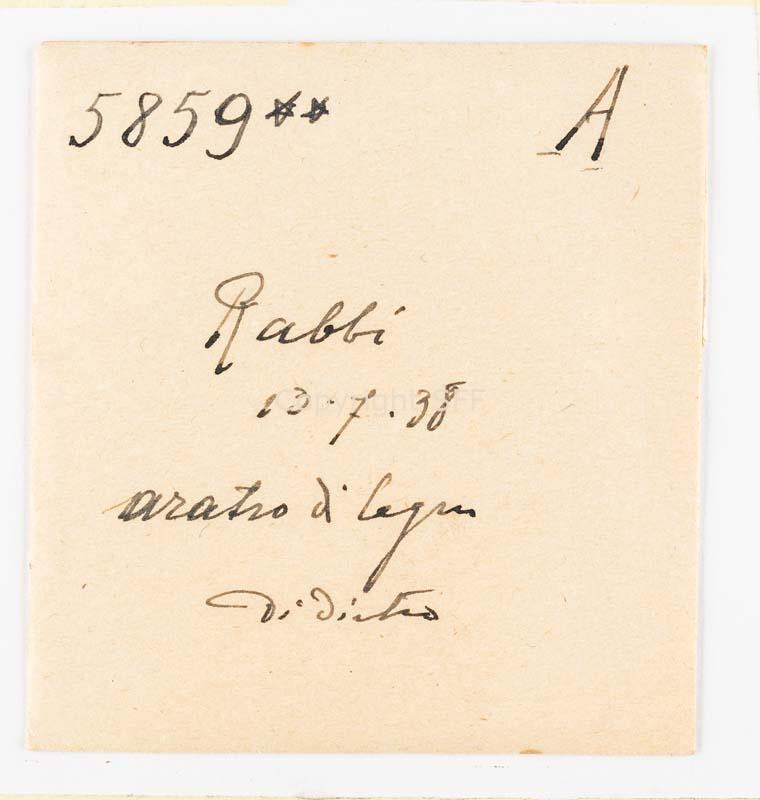 5859** A
Rabbi
13.7.38
aratro di legno
di dietro